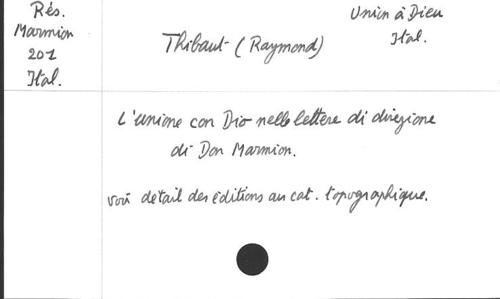 Rés.
Marmion
201
Ital.
Thibaut (Raymond)
Union à Dieu
Ital.
L'unione con Dio nelle lettere di direzione
di Don Marmion.
voir détail des éditions au cat. topographique.